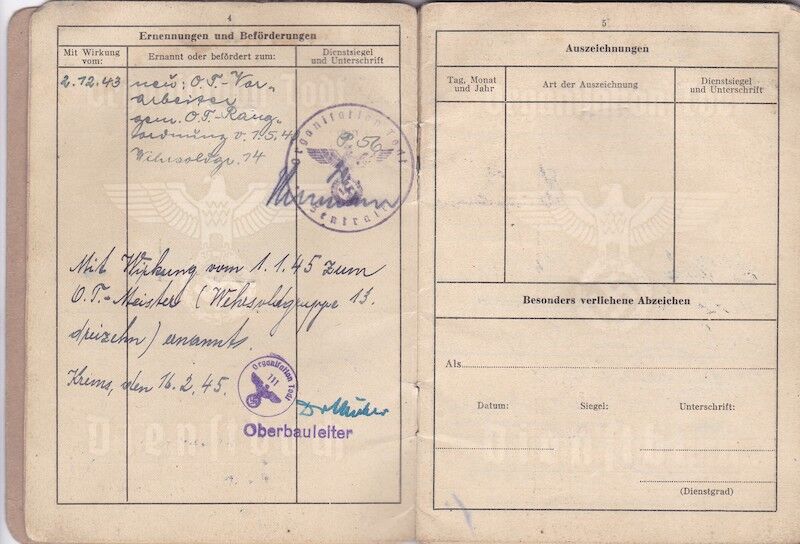 4
Ernennungen und Beförderungen
Mit Wirkung vom:
Ernannt oder befördert zum:
Dienstsiegel und Unterschrift
2.12.43
neu: O.T.-Vor-
arbeiter
gem. O.T.-Rang-
ordnung v. 1.5.4
Wehrsoldgr. 14
Organisation Todt
P. 56
Zentrale
Mit Wirkung vom 1.1.45 zum
O.T.-Meister (Wehrsoldgruppe 13.
dreizehn) ernannt.
Krems, den 16.2.45.
Organisation Todt
111
Oberbauleiter
5
Auszeichnungen
Tag, Monat und Jahr
Art der Auszeichnung
Dienstsiegel und Unterschrift
Besonders verliehene Abzeichen
Als
Datum:
Siegel:
Unterschrift:
(Dienstgrad)
Dienstbuch